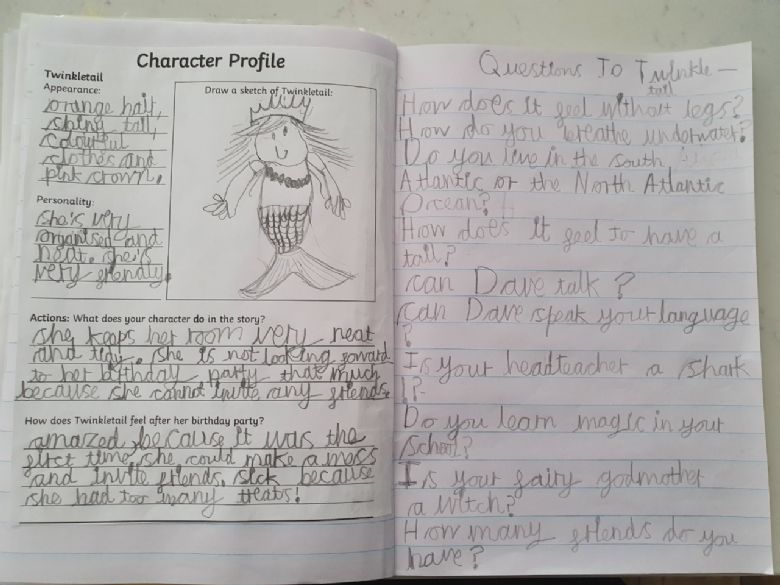 Character Profile
Twinkletail
Appearance:
orange hair,
shiny tail,
colourful
clothes and
pink crown.
Personality:
she's very
organised and
neat. she's
very friendly.
Draw a sketch of Twinkletail:
Actions: What does your character do in the story?
she keeps her room very neat
and tidy. she is not looking forward
to her birthday party that much
because she cannot invite any friends.
How does Twinkletail feel after her birthday party?
amazed, because it was the
first time she could make a mess
and invite friends, sick because
she had too many treats!
Questions To Twinkle-
tail
How does it feel without legs?
How do you breathe underwater?
Do you live in the south
Atlantic or the North Atlantic
Ocean?
How does it feel to have a
tail?
can Dave talk?
can Dave speak your language
?
Is your headteacher a shark
!?
Do you learn magic in your
school?
Is your fairy godmother
a witch?
How many friends do you
have?